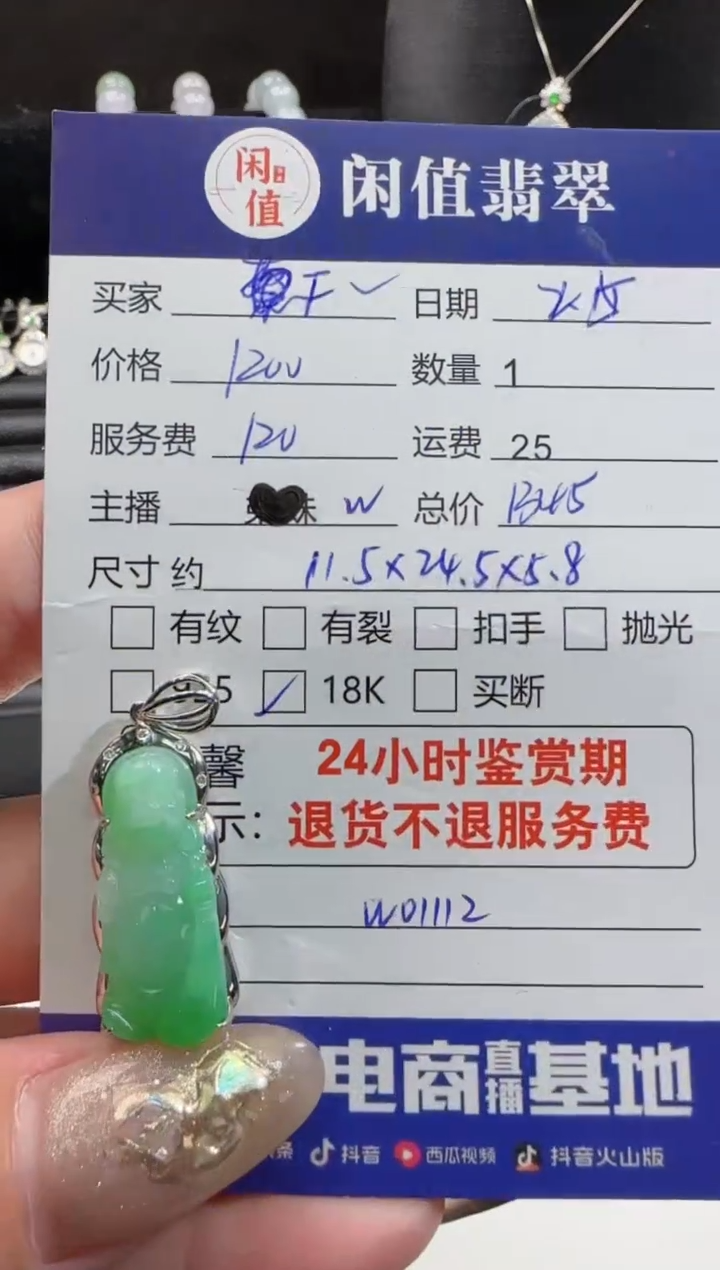 闲值
闲值翡翠
买家 千 日期 2.15
价格 1200 数量 1
服务费 120 运费 25
主播 妹 W 总价 1345
尺寸 约 11.5×24.5×5.8
有纹 有裂 扣手 抛光
925 18K 买断
馨 24小时鉴赏期
示: 退货不退服务费
W01112
电商直播基地
条 抖音 西瓜视频 抖音火山版